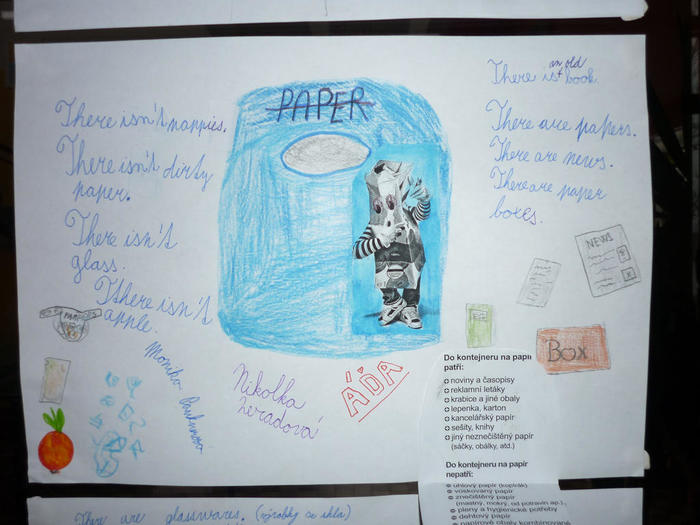 PAPER
There isn't nappies.
There isn't dirty
paper.
There isn't
glass.
There isn't
apple.
There is an old book.
There are papers.
There are news.
There are paper
boxes.
NEWS
BOX
PAMPERS
Nikolka
Zeradová
ÁĎA
Do kontejneru na papír
patří:
noviny a časopisy
reklamní letáky
krabice a jiné obaly
lepenka, karton
kancelářský papír
sešity, knihy
jiný neznečištěný papír
(sáčky, obálky, atd.)
Do kontejneru na papír
nepatří:
uhlový papír (kopírák)
voskovaný papír
znečištěný papír
(mastný, mokrý, od potravin ap.),
pleny a hygienické potřeby
dehtový papír
papírové obaly kombinované
There are glasswares. (výrobky ze skla)